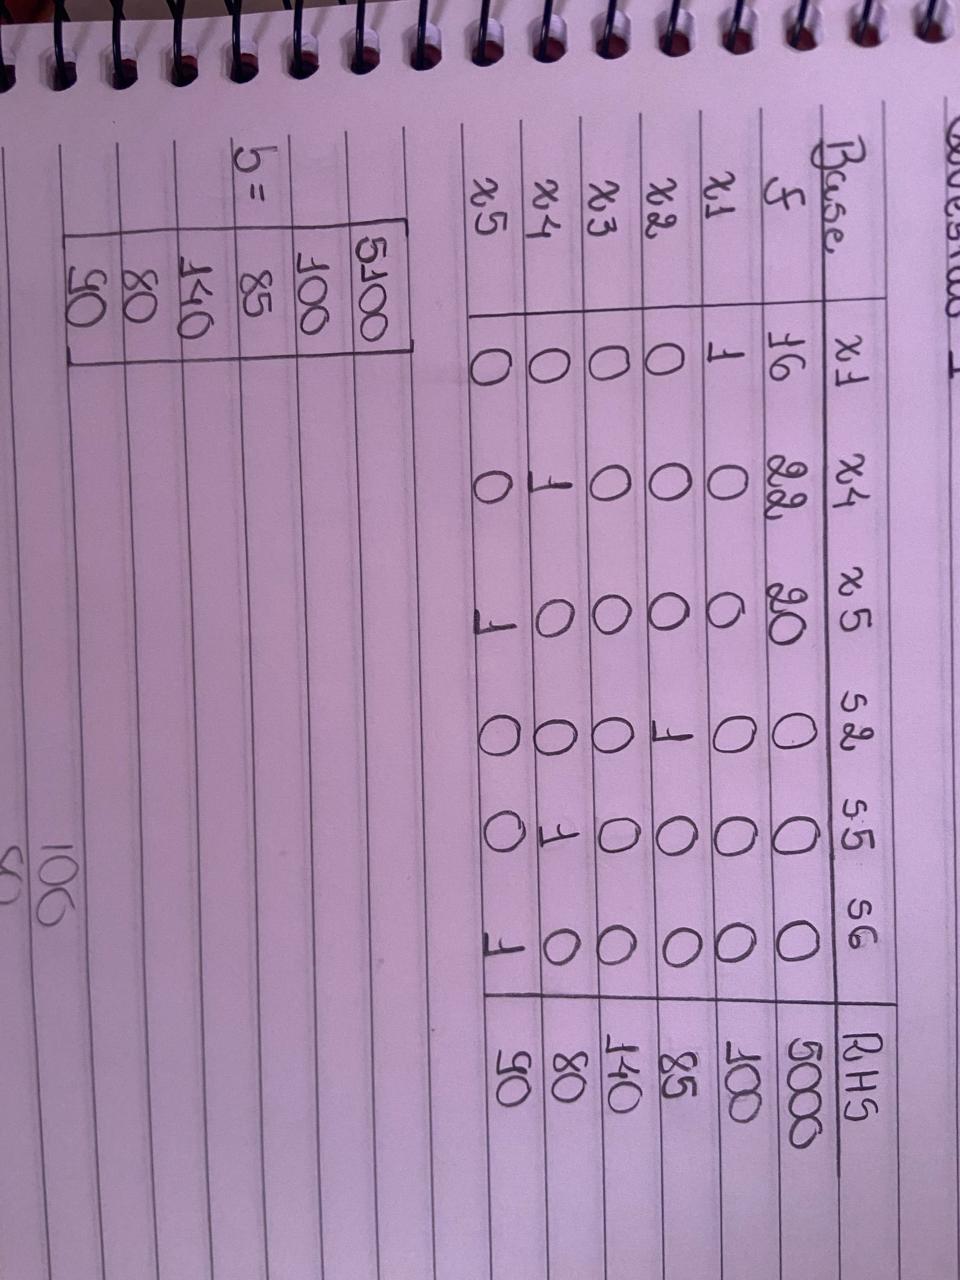 Base x1 x4 x5 s2 s5 s6 RHS
f 16 22 20 0 0 0 5000
x1 1 0 0 0 0 0 100
x2 0 0 0 1 0 0 85
x3 0 0 0 0 0 0 140
x4 0 1 0 0 1 0 80
x5 0 0 1 0 0 1 90
5100
100
b = 85
140
80
90
106